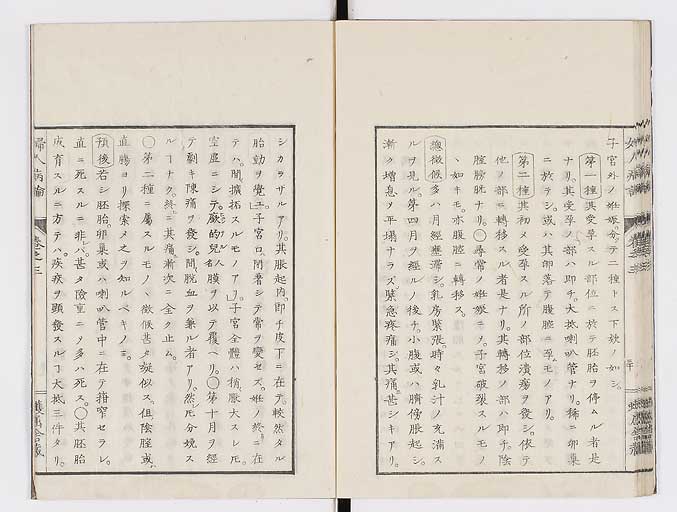 子宮外ノ妊娠分テ二種トス下欵ノ如シ
第一種其受孕スル部位ニ於テ胚胎ヲ停ムル者是
ナリ其受孕ノ部ハ即チ大抵喇叭管ナリ稀ニ卵巣
ニ於テシ或ハ其卵落テ腹腔ニ至ルモノアリ
第二種其初メ受孕スル所ノ部位潰瘍ヲ發シ依テ
他ノ部ニ轉移スル者是ナリ其轉移ノ部ハ即チ陰
腟膀胱ナリ○尋常ノ妊娠ニシテ子宮破裂スルモノ
ノ如キモ亦腹腔ニ轉移ス
總徴候多ハ月經壅滞シ乳房緊張時々乳汁ノ充滿ス
ルヲ見ル第四月ヲ經ルノ後チ小腹或ハ臍傍脹起シ
漸ク増息ヲ平塌ナラズ緊急疼痛シ其痛甚シキアリ
シカラザルアリ其脹起内即チ皮下ニ在テ較然タル
胎動ヲ覚ユ子宮口閉著シテ常ヲ變セズ妊ノ終ニ在
テハ間擴拓スルモノアリ子宮全體ハ稍脹大スレ𪜈
空虚ニシテ厥的兒名人膜ヲ以テ覆ヘリ○第十月ヲ經
テ劇キ陳痛ヲ發シ間脱血ヲ兼ル者アリ然𪜈分娩ス
ルヿナク終ニ其痛漸次ニ全ク止ム
○第二種ニ属スルモノハ徴候甚タ疑似ス但陰腟或ハ
直腸ヨリ探索メ之ヲ知ルベキノミ
預後若シ胚胎卵巣或ハ喇叭管中ニ在テ搾窄セラレ
直ニ死スルニ非ハ甚タ險重ニメ多ハ死ス○其胚胎
成育スルニ方テハ疾疚ヲ頸發スルヿ大抵三件タリ
婦人病論
卷之三